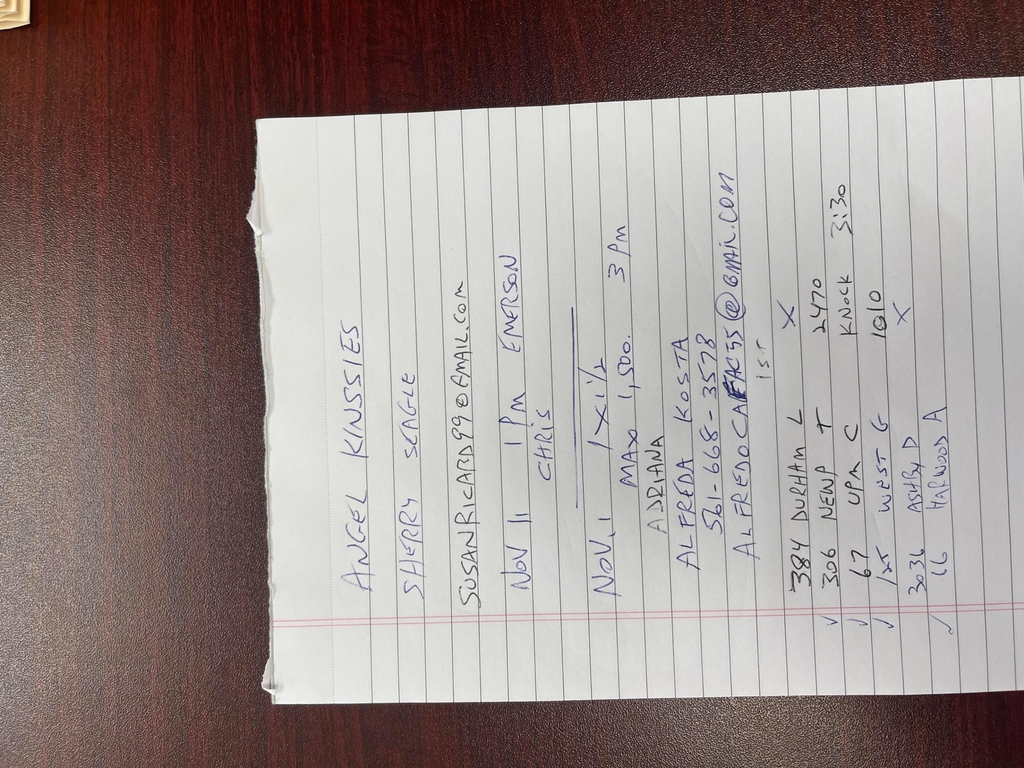 ANGEL KINSSIES
SHERRY SEAGLE
SUSANRICARD99@GMAIL.COM
NOV 11 1 PM EMERSON
CHRIS
NOV. 1 1 X 1 1/2
MAX 1,500. 3 PM
ADRIANA
ALFREDA KOSTA
561-668-3578
@GMAIL.COM
1ST
384 DURHAM L X
✓ 306 NEWP T 2470
✓ 67 UPM C KNOCK 3:30
✓ 125 WEST G 1010
3036 ASHBY D X
✓ 16 HARWOOD A